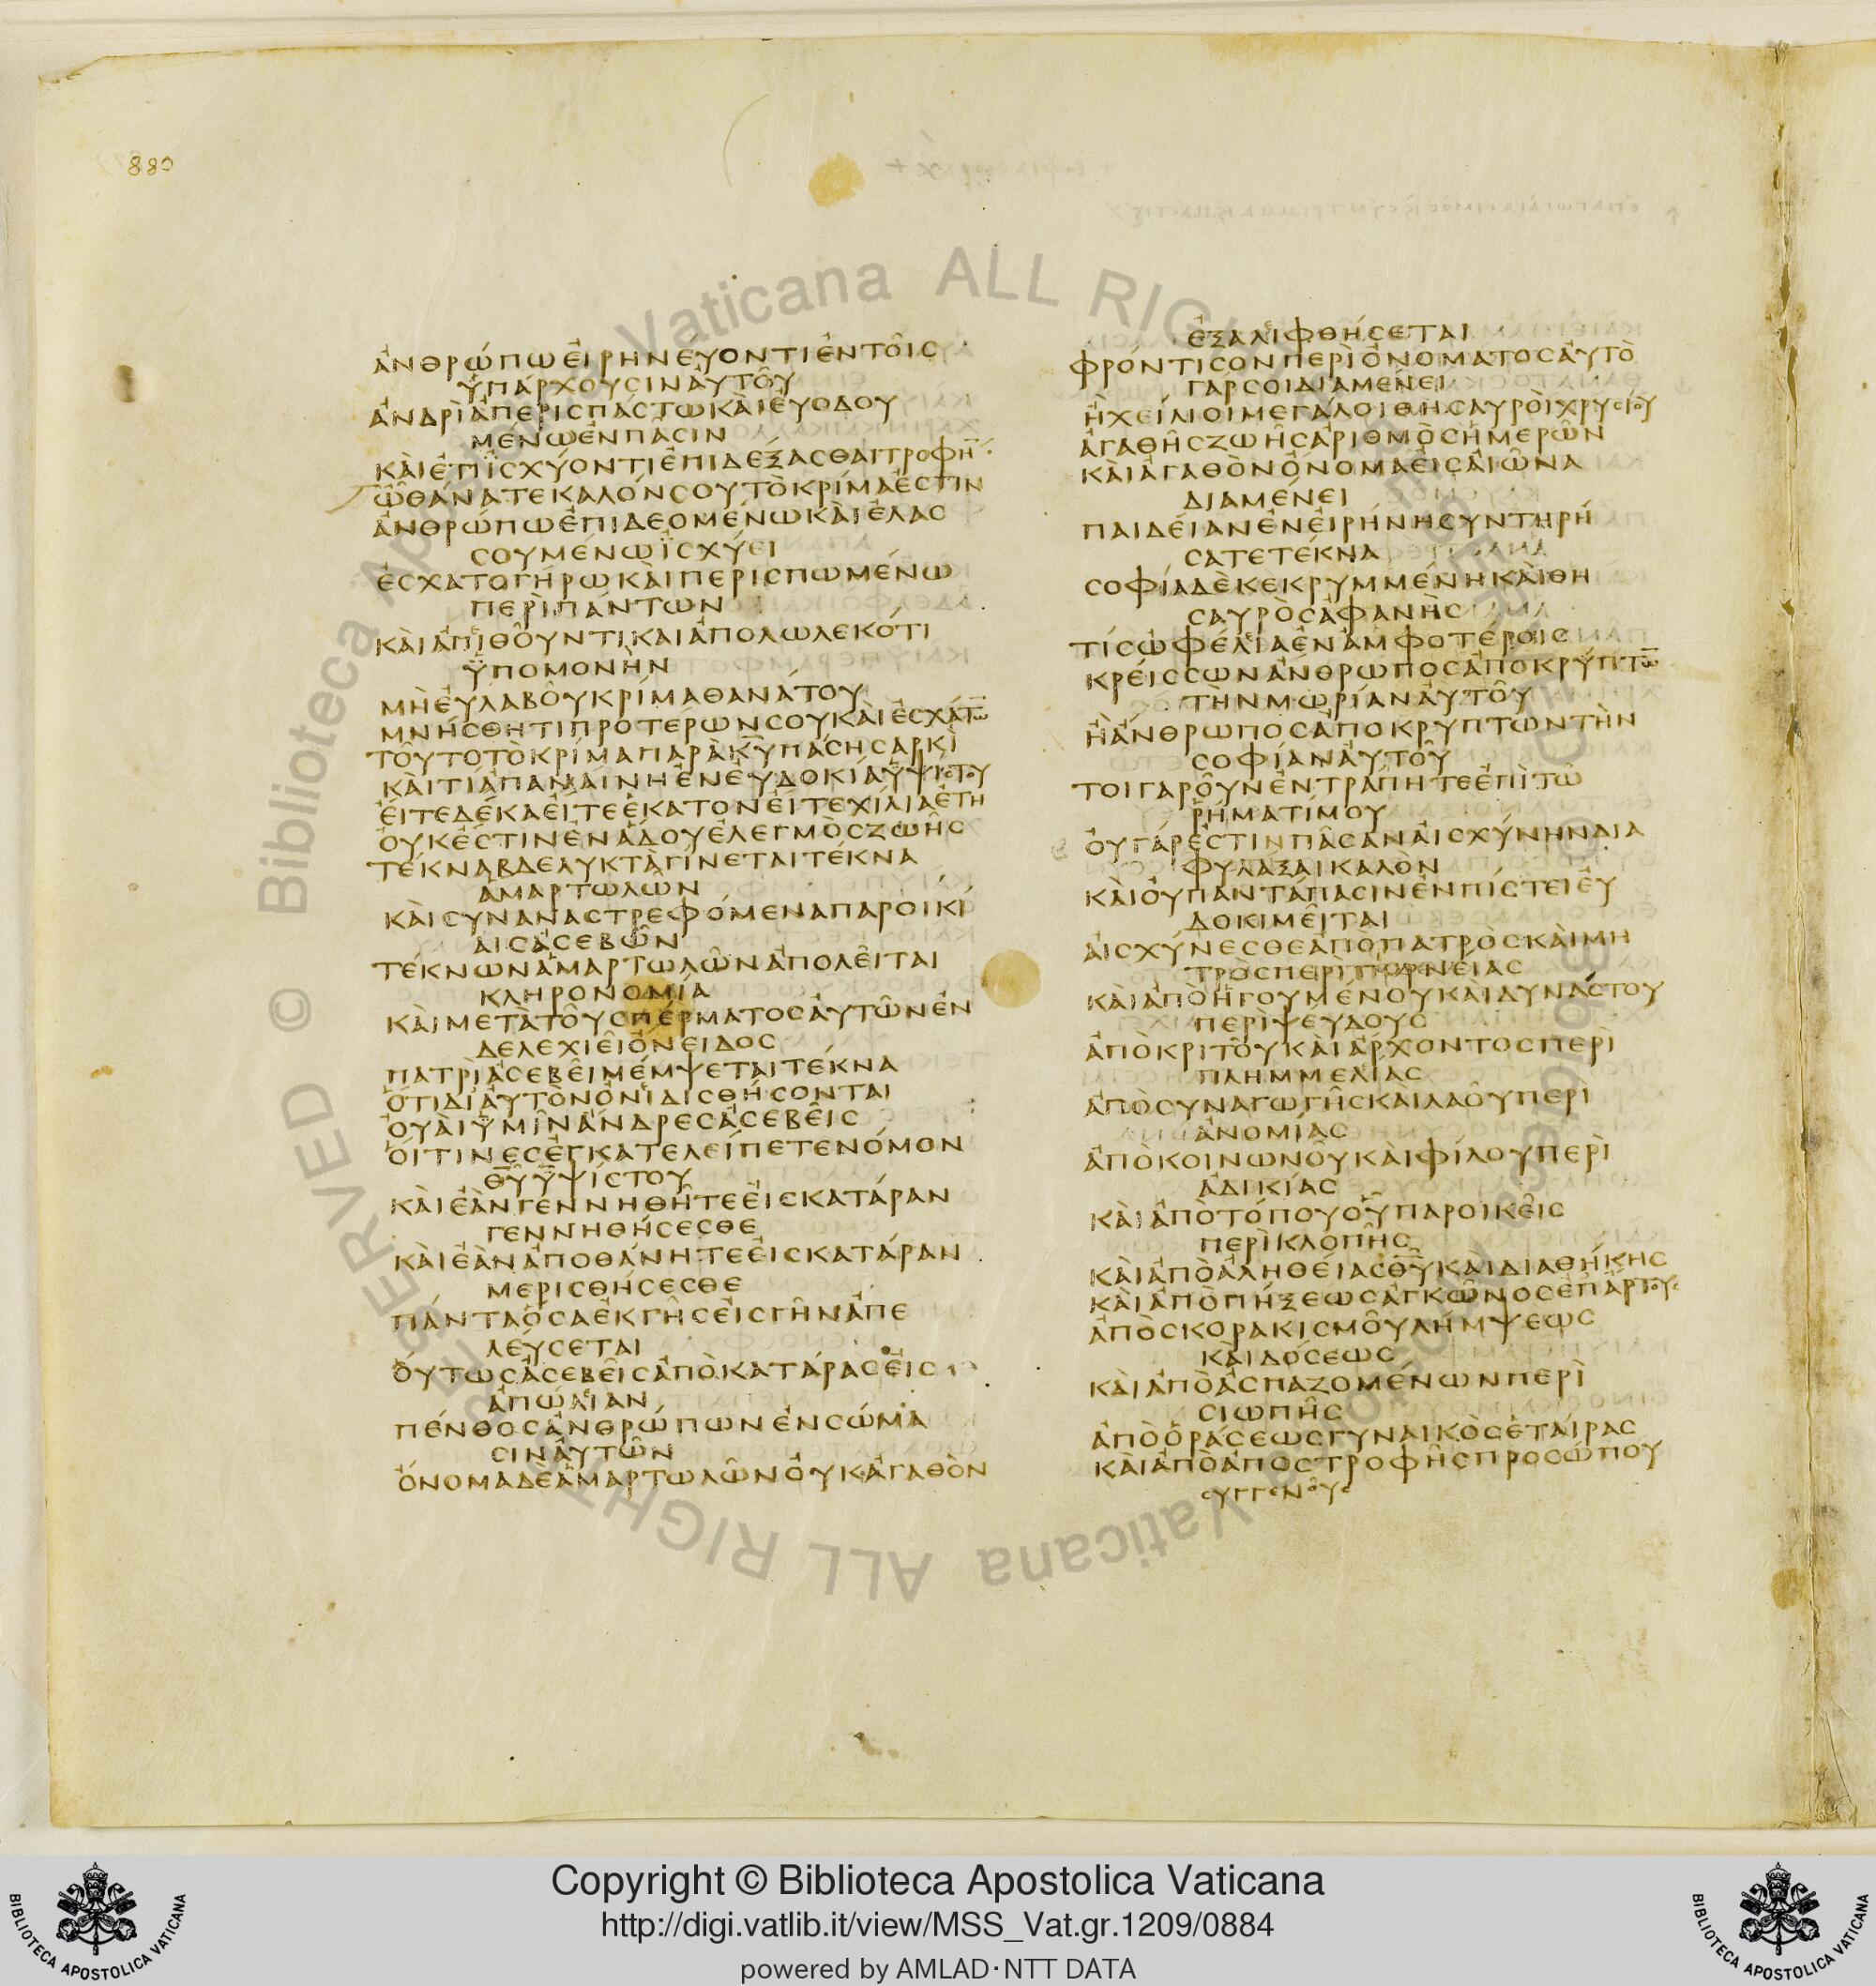 880
ἀνθρώπω εἰρηνεύοντι ἐν τοῖς
ὑπάρχουσιν αὐτοῦ
ἀνδρὶ ἀπερισπάστω καὶ εὐοδου
μένω ἐν πᾶσιν
καὶ ἔτι ϊσχύοντι ἐπιδέξασθαι τροφή̅
ὦ θάνατε καλόν σου τὸ κρίμα ἐστὶν
ἀνθρώπω ἐπιδεομένω καὶ ἐλασ
σουμένω ϊσχύει
ἐσχατογήρω καὶ περισπωμένω
περὶ πάντων
καὶ ἀπιθοῦντι καὶ ἀπολωλεκότι
ὑπομονὴν
μὴ εὐλαβοῦ κρίμα θανάτου
μνήσθητι προτέρων σου καὶ ἐσχάτω̅
τοῦτο τὸ κρίμα παρὰ κ̅υ̅ πάση σαρκὶ
καὶ τί ἀπαναίνη ἐν εὐδοκία ὑψίστου
εἴτε δέκα εἴτε ἑκατὸν εἴτε χίλια ἔτη
οὐκ ἔστιν ἐν ἅδου ἐλεγμὸς ζωῆς
τέκνα βδελυκτὰ γίνεται τέκνα
ἁμαρτωλῶν
καὶ συναναστρεφόμενα παροικί
αις ἀσεβῶν
τέκνων ἁμαρτωλῶν ἀπολεῖται
κληρονομία
καὶ μετὰ τοῦ σπέρματος αὐτῶν ἐν
δελεχιεῖ ὄνειδος
πατρὶ ἀσεβεῖ μέμψεται τέκνα
ὅτι δι αὐτὸν ὀνιδισθήσονται
οὐαὶ ὑμῖν ἄνδρες ἀσεβεῖς
οἵτινες ἐγκατελείπετε νόμον
θ̅υ̅ ὑψίστου
καὶ ἐὰν γεννηθῆτε εἰς κατάραν
γεννηθήσεσθε
καὶ ἐὰν ἀποθάνητε εἰς κατάραν
μερισθήσεσθε
πάντα ὅσα ἐκ γῆς εἰς γῆν ἀπε
λεύσεται
οὕτως ἀσεβεῖς ἀπὸ κατάρας εἰς
ἀπώλιαν
πένθος ἀνθρώπων ἐν σώμα
σιν αὐτῶν
ὄνομα δὲ ἁμαρτωλῶν οὐκ ἀγαθὸν
ἐξαλιφθήσεται
φρόντισον περὶ ὀνόματος αὐτὸ
γάρ σοι διαμένει
ἢ χείλιοι μεγάλοι θησαυροὶ χρυσίου
ἀγαθῆς ζωῆς ἀριθμὸς ἡμερῶν
καὶ ἀγαθὸν ὄνομα εἰς αἰῶνα
διαμένει
παιδείαν ἐν εἰρήνη συντηρή
σατε τέκνα
σοφία δὲ κεκρυμμένη καὶ θη
σαυρὸς ἀφανὴς
τίς ὠφέλια ἐν ἀμφοτέροις
κρείσσων ἄνθρωπος ἀποκρύπτω̅
τὴν μωρίαν αὐτοῦ
ἢ ἄνθρωπος ἀποκρύπτων τὴν
σοφίαν αὐτοῦ
τοιγαροῦν ἐντράπητε ἐπὶ τῶ
ῥήματί μου
οὐ γάρ ἐστιν πᾶσαν αἰσχύνην δια
φυλάξαι καλὸν
καὶ οὐ πάντα πᾶσιν ἐν πίστει εὐ
δοκιμεῖται
αἰσχύνεσθε ἀπὸ πατρὸς καὶ μη
τρὸς περὶ πορνείας
καὶ ἀπὸ ἡγουμένου καὶ δυνάστου
περὶ ψεύδους
ἀπὸ κριτοῦ καὶ ἄρχοντος περὶ
πλημμελίας
ἀπὸ συναγωγῆς καὶ λαοῦ περὶ
ἀνομίας
ἀπὸ κοινωνοῦ καὶ φίλου περὶ
ἀδικίας
καὶ ἀπὸ τόπου οὗ παροικεῖς
περὶ κλοπῆς
καὶ ἀπὸ ἀληθείας θ̅υ̅ καὶ διαθήκης
καὶ ἀπὸ πήξεως ἀγκῶνος ἐπ ἄρτους
ἀπὸ σκορακισμοῦ λήμψεως
καὶ δόσεως
καὶ ἀπὸ ἀσπαζομένων περὶ
σιωπῆς
ἀπὸ ὁράσεως γυναικὸς ἑταίρας
καὶ ἀπὸ ἀποστροφῆς προσώπου
συγγενοῦς
ALL RIGHTS RESERVED © Biblioteca Apostolica Vaticana
Copyright © Biblioteca Apostolica Vaticana
http://digi.vatlib.it/view/MSS_Vat.gr.1209/0884
powered by AMLAD·NTT DATA
BIBLIOTECA APOSTOLICA VATICANA
BIBLIOTECA APOSTOLICA VATICANA